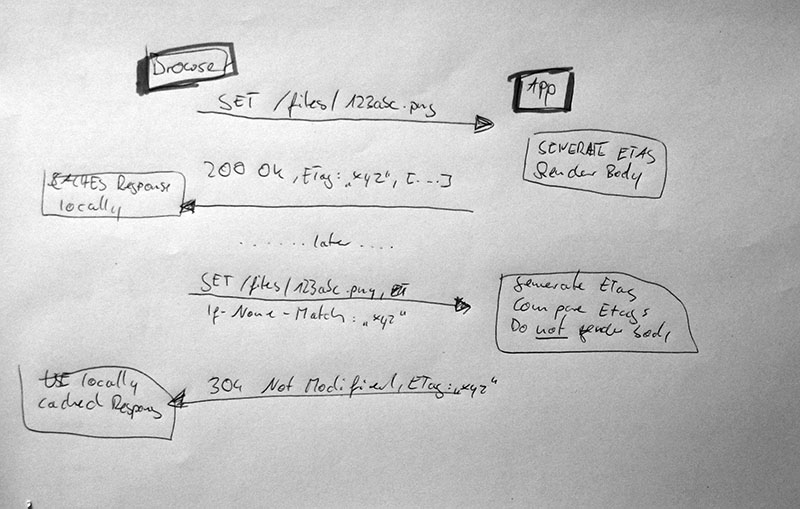 Browser
App
GET /files/123abc.png
GENERATE ETAG
Render Body
200 Ok, ETag: „xyz“, [....]
CACHES Response
locally
.......later....
GET /files/123abc.png,
If-None-Match: „xyz“
Generate ETag
Compare Etags
Do not render body
USE locally
cached Response
304 Not Modified, ETag: „xyz“